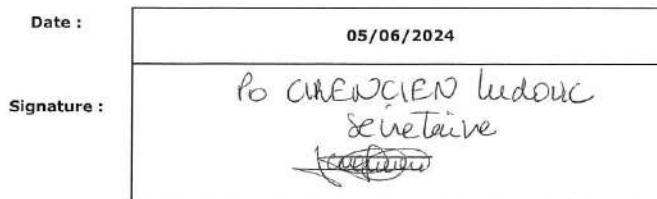 Date :
05/06/2024
Signature :
Po CIRENCIEN Ludovic
Secretaire